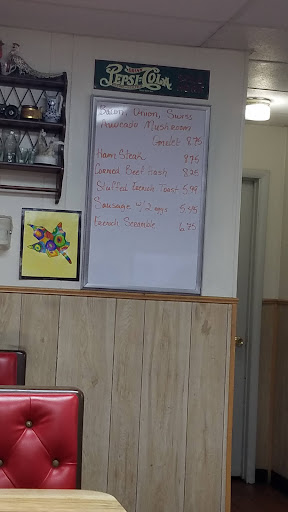 PEPSI-COLA
Bacon, Onion, Swiss
Avocado Mushroom
Omelet 8.75
Ham Steak 9.75
Corned Beef Hash 8.25
Stuffed French Toast 5.99
Sausage w/2 eggs 5.45
French Scramble 6.75